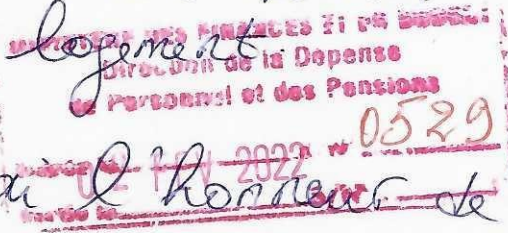 logement
MINISTERE DES FINANCES ET DU BUDGET
Direction de la Depense
de Personnel et des Pensions
0529
NOV 2022 N°
l'honneur de